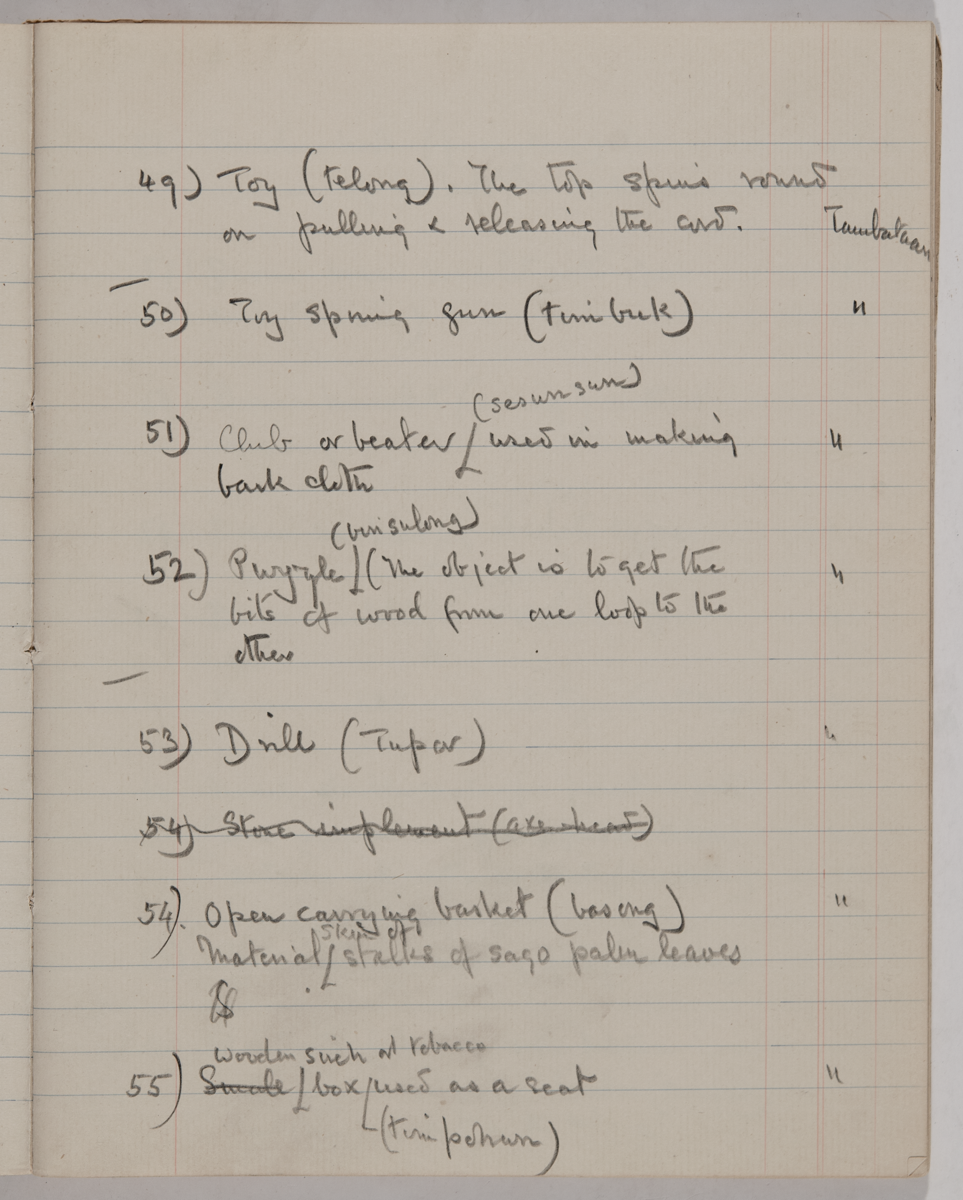 49) Toy (telong). The top spins round
on pulling & releasing the cord. Tambatuan
50) Toy spring gun (timbuk) "
(sesunsun)
51) Club or beater used in making "
bark cloth
(binsulong)
52) Puzzle (The object is to get the "
bits of wood from one loop to the
other
53) Drill (Tupar) "
54) Stone implement (axe-head)
54). Open carrying basket (baseng) "
skin of
Material stalks of sago palm leaves
wooden sireh or tobacco
55) Small box used as a seat "
(timpohun)